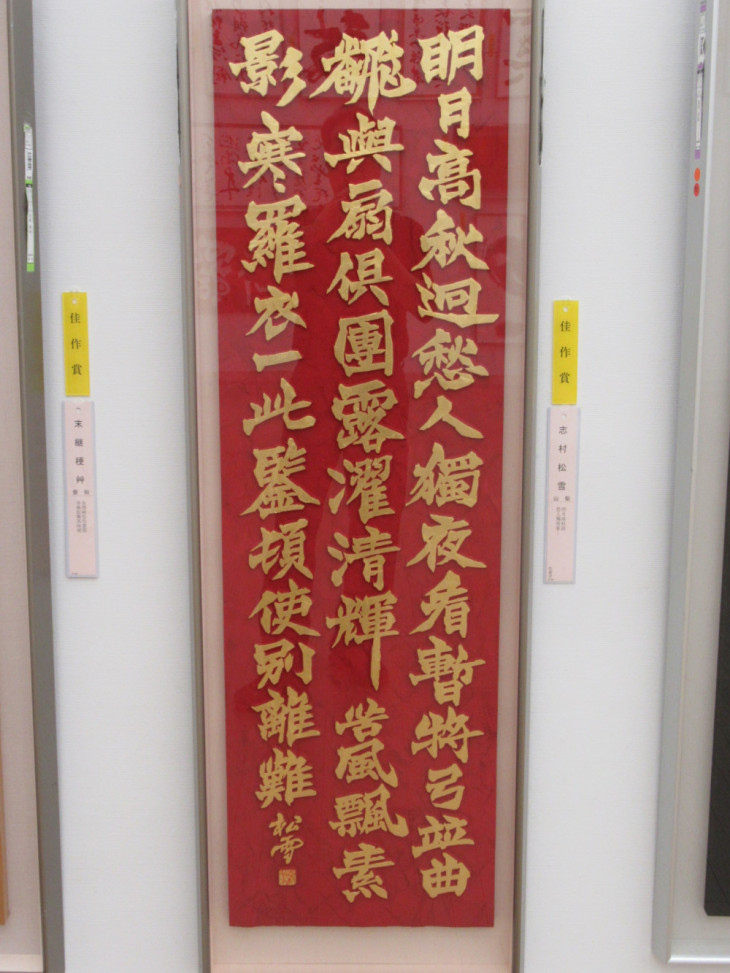 明月高秋迥愁人獨夜看暫將弓竝曲
飜與扇俱團露濯清輝苦風飄素
影寒羅衣一此鑒頓使別離難
松雪
佳作賞
志村松雪
山梨
佳作賞
末継梗艸